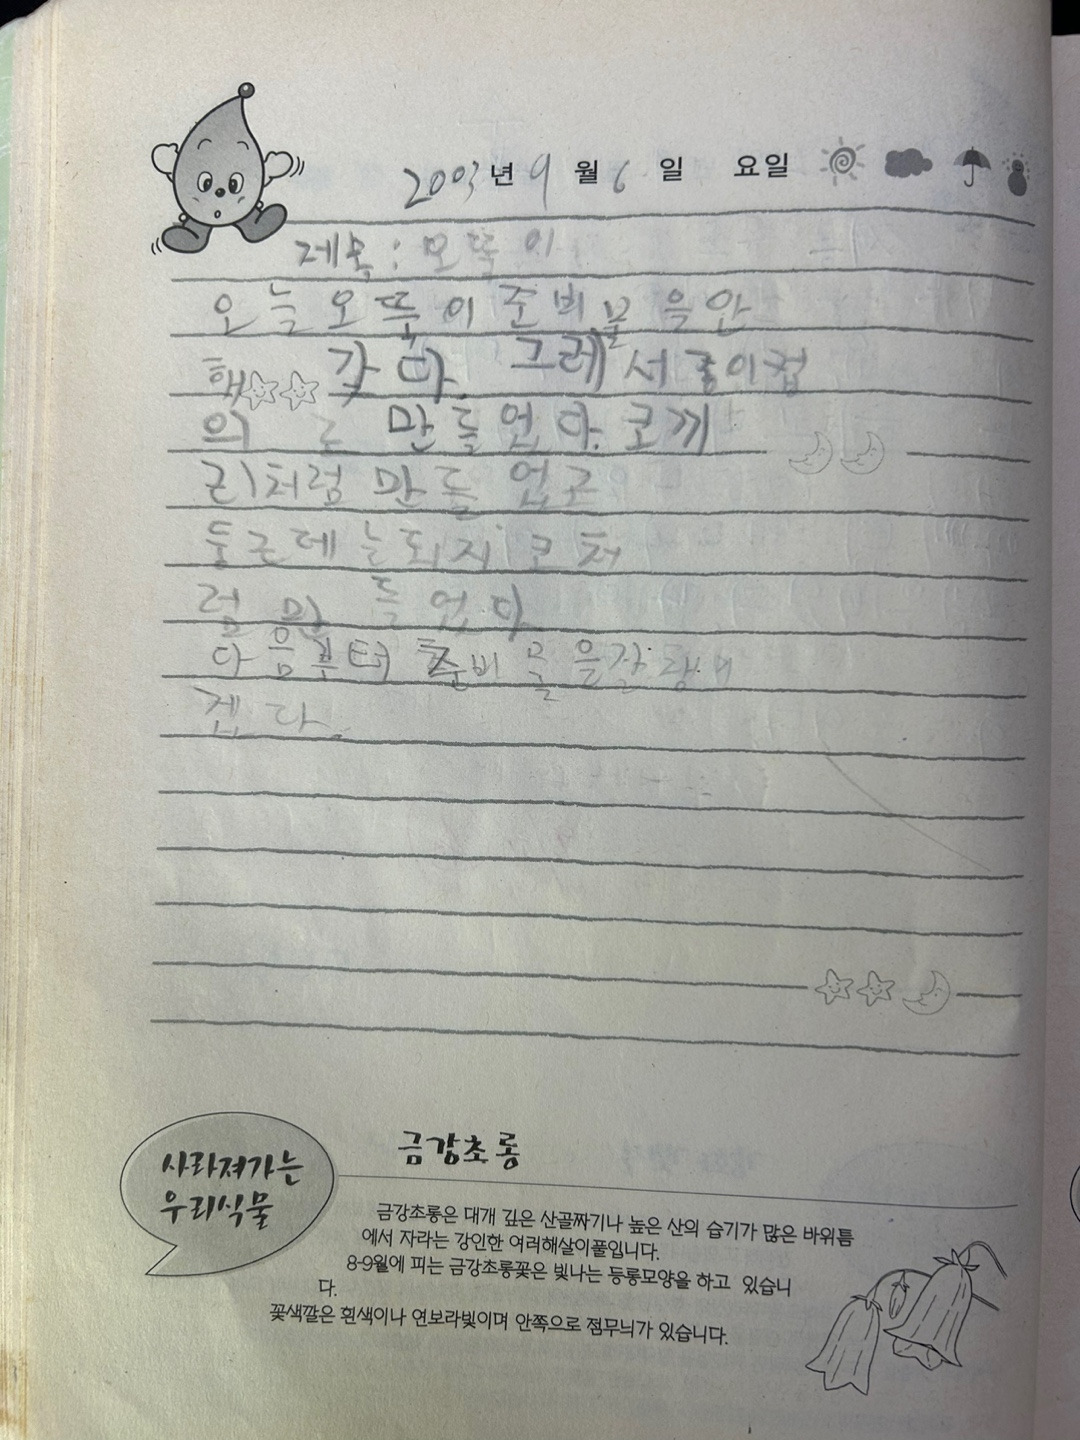 2003년 9월 6일 요일
제목: 오뚝이
오늘 오뚝이 준비물을 안
해 갖다. 그레서 종이컵
의 로 만들었다. 코끼
리처럼 만들 었고
둥근데는 되지 코 처
럼 만 들었다
다음부터 준비물을 잘 챙
겐다.
사라져가는
우리식물
금강초롱
금강초롱은 대개 깊은 산골짜기나 높은 산의 습기가 많은 바위틈
에서 자라는 강인한 여러해살이풀입니다.
8-9월에 피는 금강초롱꽃은 빛나는 등롱모양을 하고 있습니
다.
꽃색깔은 흰색이나 연보라빛이며 안쪽으로 점무늬가 있습니다.